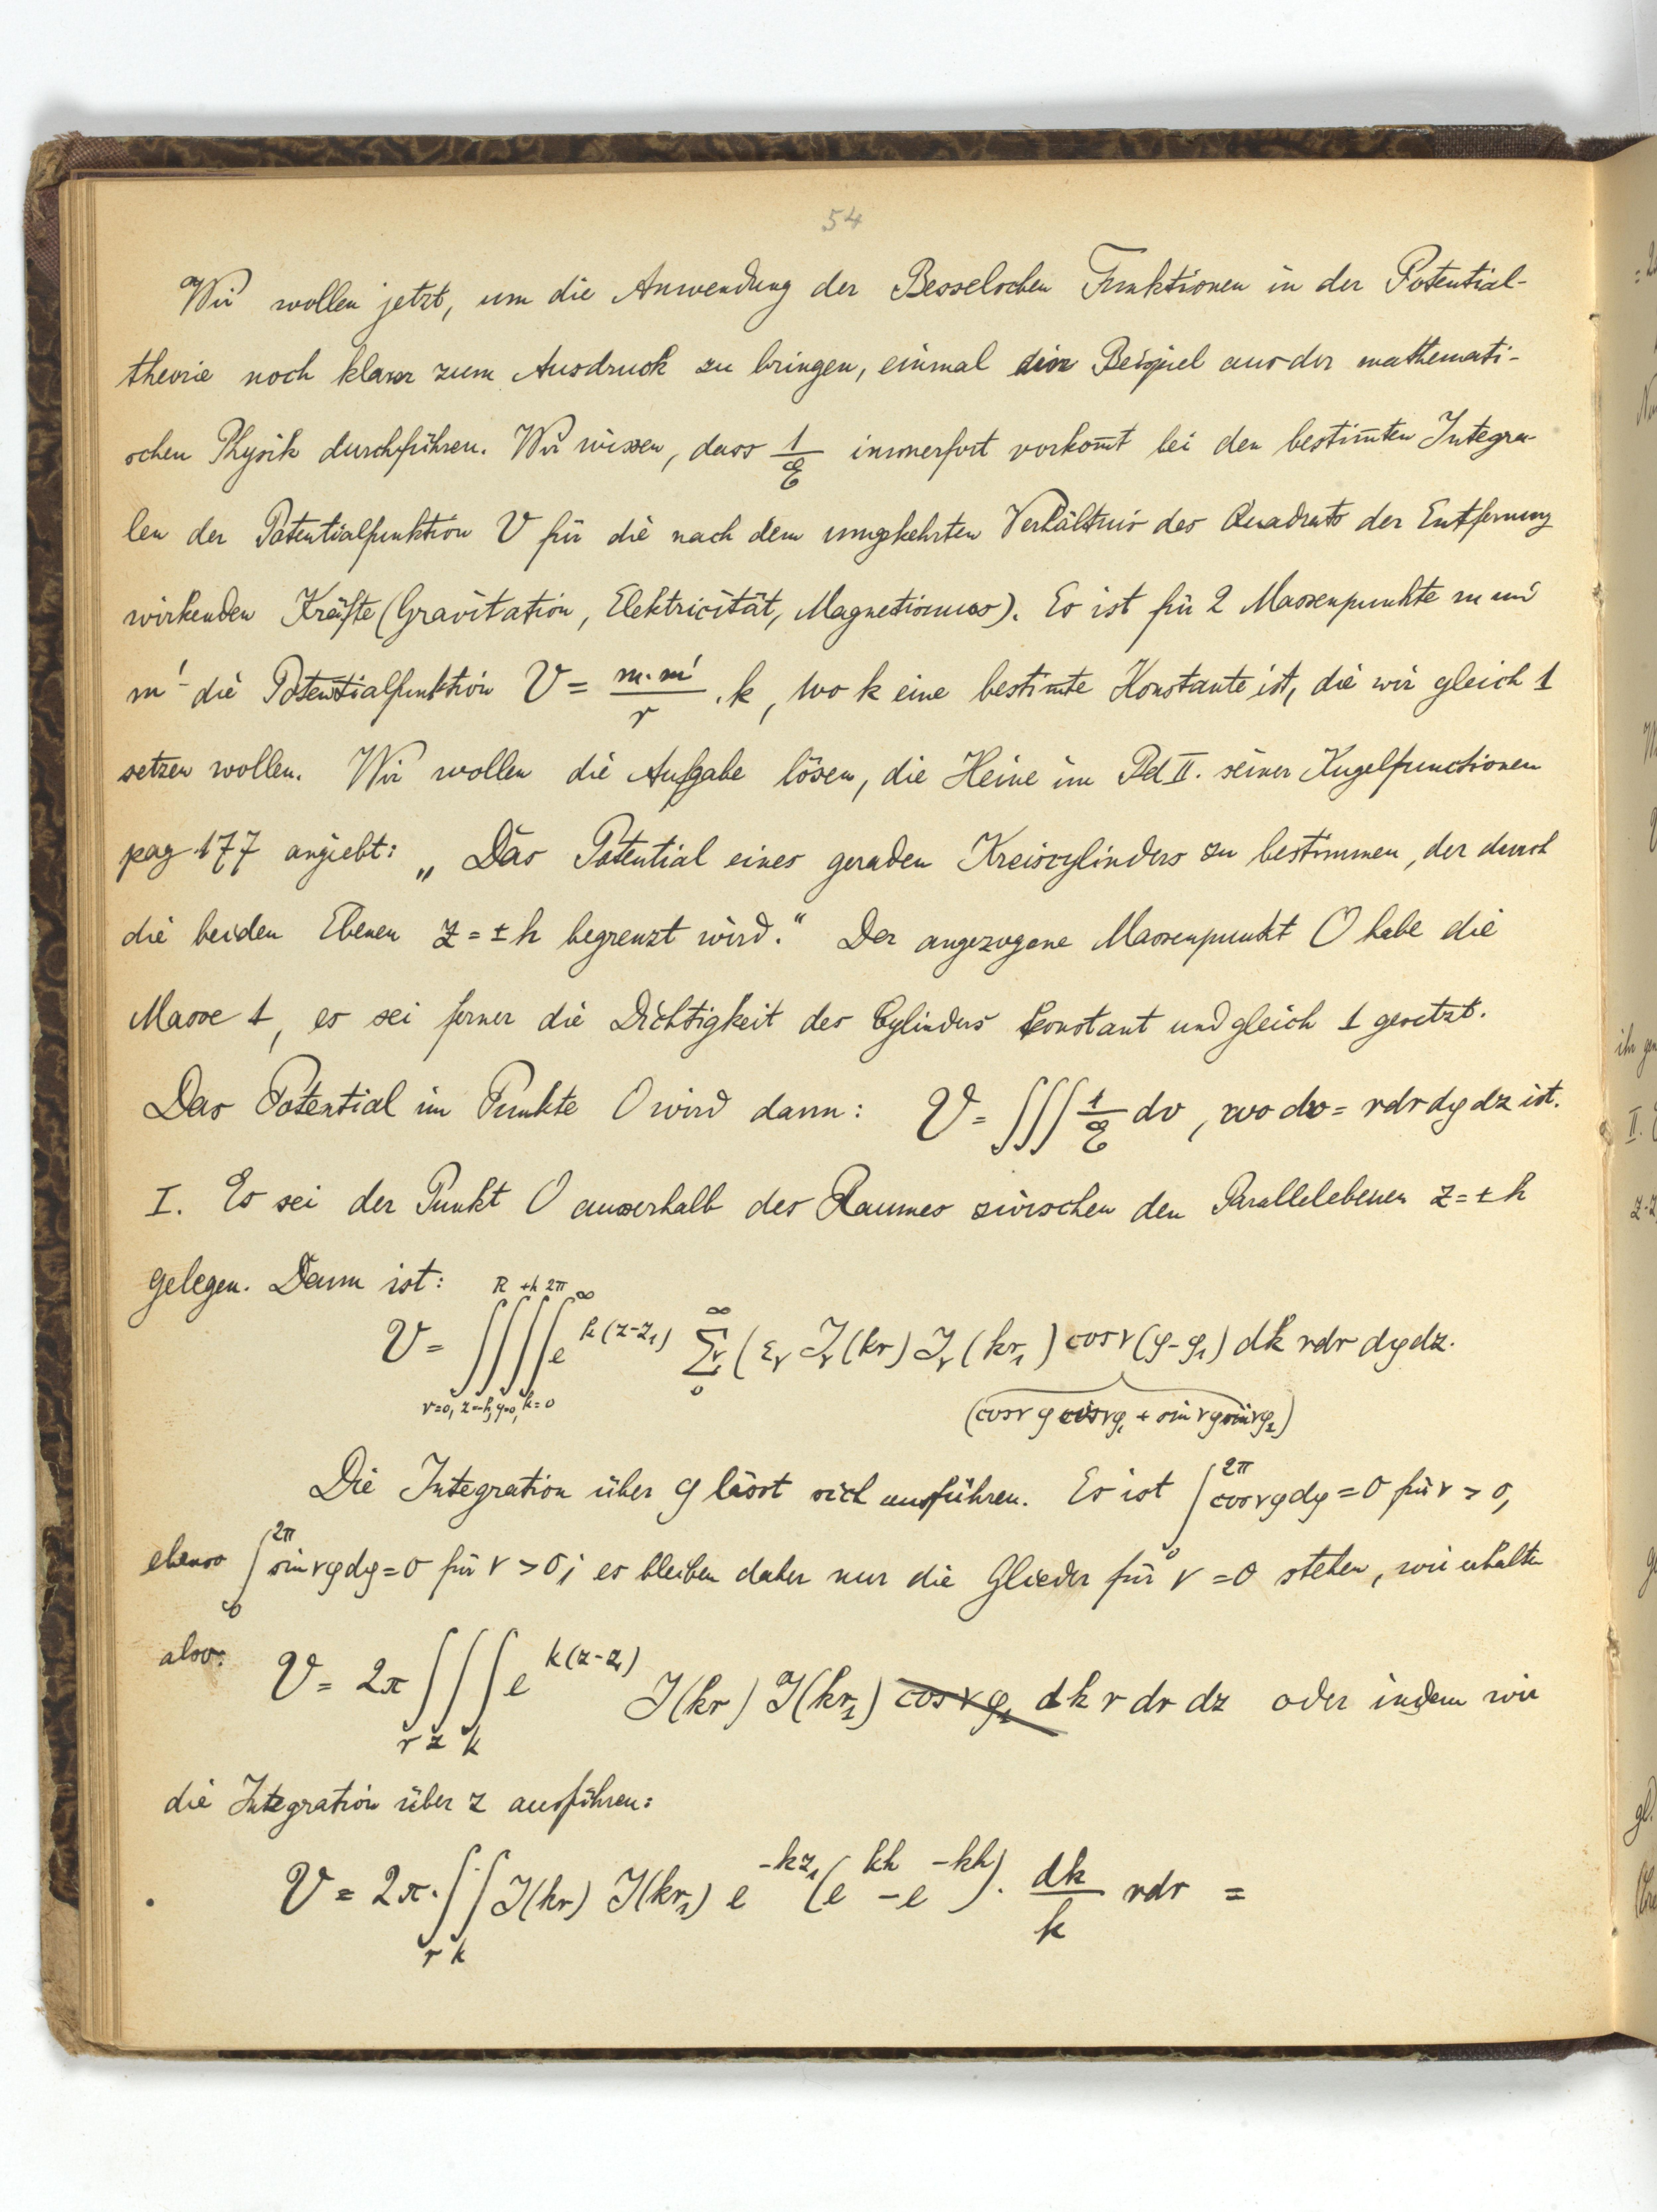 54
Wir wollen jetzt, um die Anwendung der Besselschen Funktionen in der Potential-
theorie noch klarer zum Ausdruck zu bringen, einmal ein Beispiel aus der mathemati-
schen Physik durchführen. Wir wissen, dass 1/E immerfort vorkom̅t bei den bestim̅ten Integra-
len der Potentialfunktion V für die nach dem umgekehrten Verhältnis des Quadrats der Entfernung
wirkenden Kräfte (Gravitation, Elektricität, Magnetismus). Es ist für 2 Massenpunkte m und
m' die Potentialfunktion V = m·m'/r · k, wo k eine bestim̅te Konstante ist, die wir gleich 1
setzen wollen. Wir wollen die Aufgabe lösen, die Heine im Bd II. seiner Kugelfunctionen
pag 177 angiebt: „Das Potential eines geraden Kreiscylinders zu bestimmen, der durch
die beiden Ebenen z = ± h begrenzt wird.“ Der angezogene Massenpunkt O habe die
Masse 1, es sei ferner die Dichtigkeit des Cylinders konstant und gleich 1 gesetzt.
Das Potential im Punkte O wird dann: V = ∫∫∫ 1/E dv, wo dv = r dr dφ dz ist.
I. Es sei der Punkt O ausserhalb des Raumes zwischen den Parallelebenen z = ± h
gelegen. Dann ist: R +h 2π ∞
V = ∫∫∫∫ e^{k(z-z₁)} Σν (εν Jν(kr) Jν(kr₁) cos ν(φ-φ₁) dk r dr dφ dz.
r=0, z=-h, φ=0, k=0 (cos νφ cos νφ₁ + sin νφ sin νφ₁)
Die Integration über φ lässt sich ausführen. Es ist ∫₀^{2π} cos νφ dφ = 0 für ν > 0,
ebenso ∫₀^{2π} sin νφ dφ = 0 für ν > 0; es bleiben daher nur die Glieder für ν = 0 stehen, wir erhalten
also: V = 2π ∫∫∫ e^{k(z-z₁)} J(kr) J(kr₁) cos νφ₁ dk r dr dz oder indem wir
r z k
die Integration über z ausführen:
V = 2π · ∫∫ J(kr) J(kr₁) e^{-kz₁} (e^{kh} - e^{-kh}) · dk/k r dr =
r k